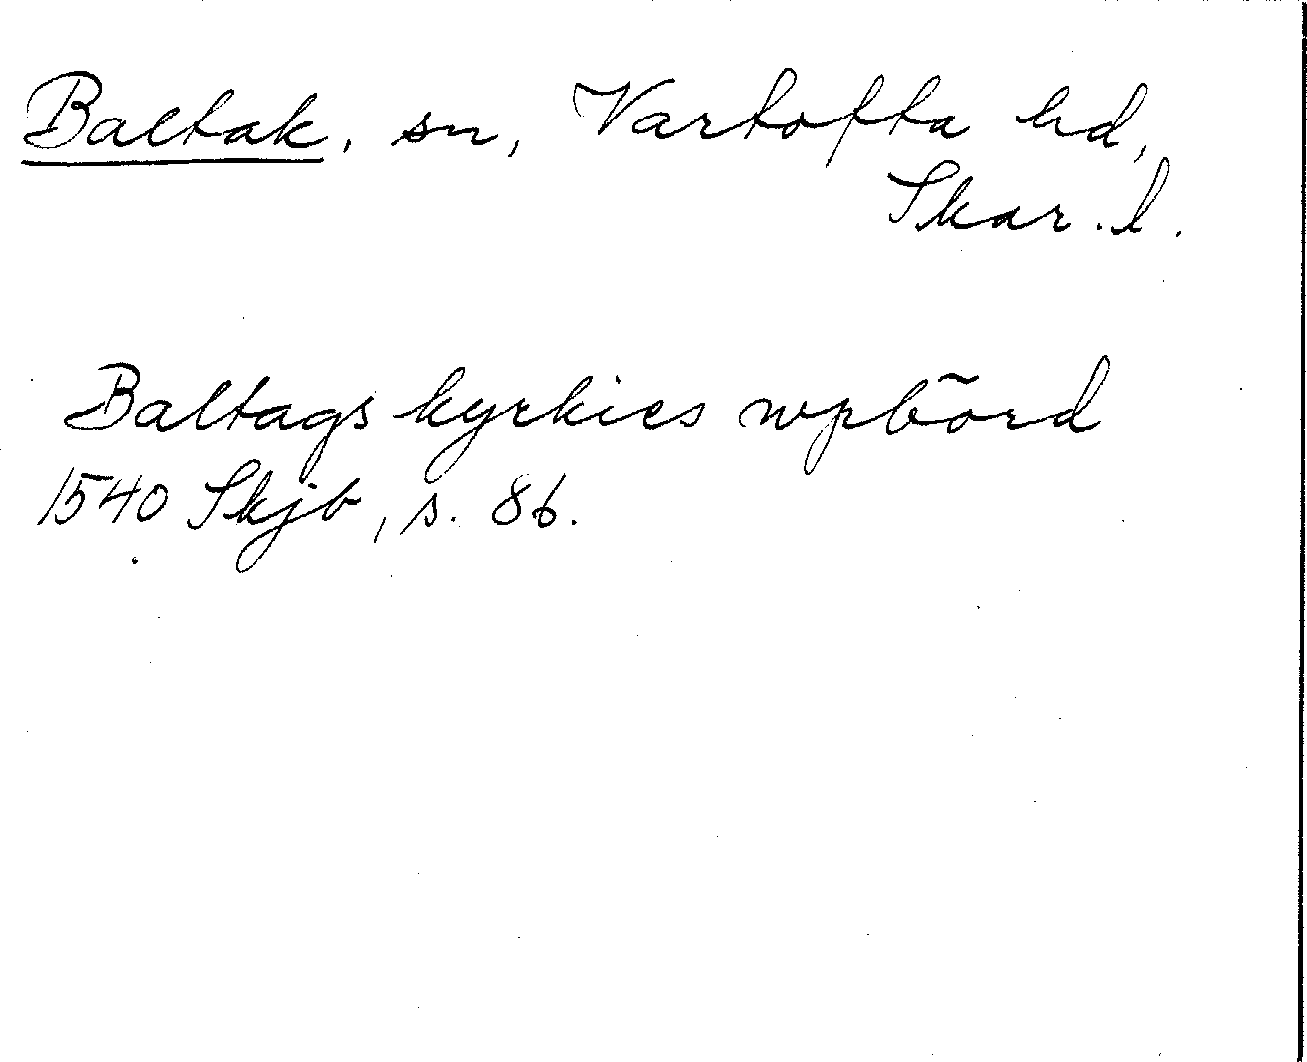 Baltak, sn, Vartofta hd,
Skar. l.
Baltags kyrkies wpbörd
1540 Skjb, s. 86.